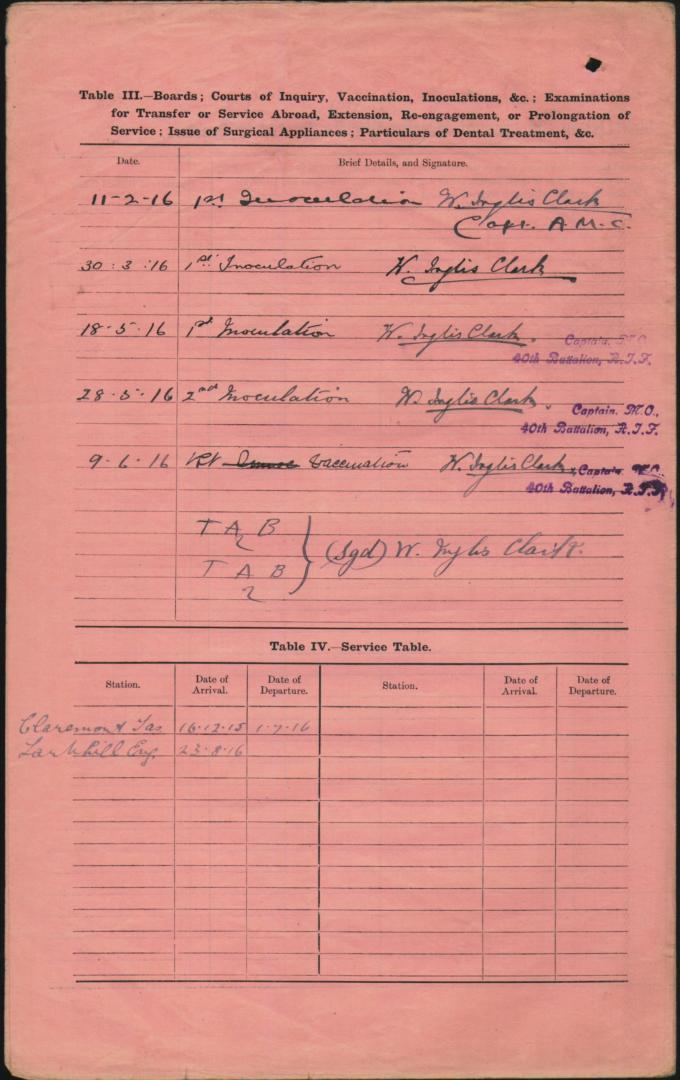 Table III.—Boards; Courts of Inquiry, Vaccination, Inoculations, &c.; Examinations
for Transfer or Service Abroad, Extension, Re-engagement, or Prolongation of
Service; Issue of Surgical Appliances; Particulars of Dental Treatment, &c.
Date. Brief Details, and Signature.
11-2-16 1st Inoculation W. Inglis Clark
Capt. A.M.C.
30:3:16 1st Inoculation W. Inglis Clark
18-5-16 1st Inoculation W. Inglis Clark. Captain. M.O.
40th Battalion, A.I.F.
28-5-16 2nd Inoculation W. Inglis Clark. Captain. M.O.,
40th Battalion, A.I.F.
9-6-16 Vaccination W. Inglis Clark, Captain. M.O.
40th Battalion, A.I.F.
T A B
2
(Sgd) W. Inglis Clark.
T A B
2
Table IV.—Service Table.
Station. Date of Arrival. Date of Departure. Station. Date of Arrival. Date of Departure.
Claremont Tas 16-12-15 1-7-16
Larkhill Eng. 23-8-16